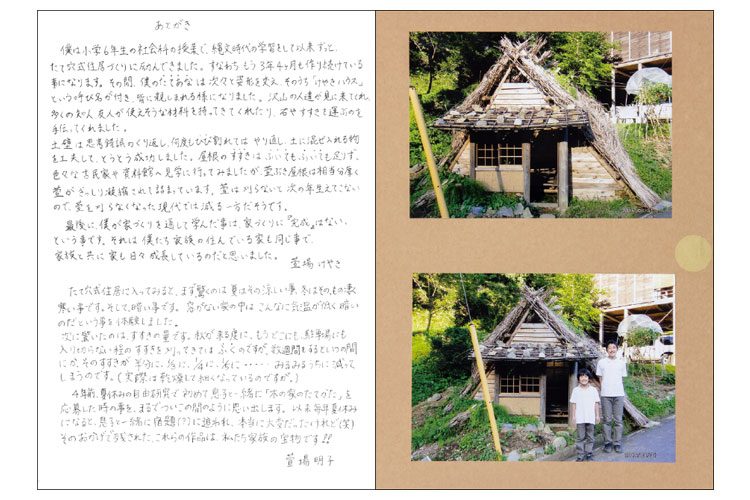 あとがき
僕は小学6年生の社会科の授業で、縄文時代の学習をして以来ずっと、
たて穴式住居づくりに励んできました。すなわちもう3年4ヶ月も作り続けている
事になります。その間、僕のたてあなは次々と姿形を変え、そのうち「けやきハウス」
という呼び名が付き、皆に親しまれる様になりました。沢山の人達が見に来てくれ、
多くの知人友人が使えそうな材料を持ってきてくれたり、石やすすきを運ぶのを
手伝ってくれました。
土壁は思考錯誤のくり返し、何度もひび割れてはやり返し、土に混ぜ入れる物
を工夫して、とうとう成功しました。屋根のすすきは、ふいてもふいても足りず、
色々な古民家や資料館へ見学に行ってみましたが、萱ぶき屋根は相当な厚く
萱がぎっしり凝縮されて詰まっています。萱は刈らないと次の年生えてこない
ので、萱を刈らなくなった現代では減る一方だそうです。
最後に、僕が家づくりを通して学んだ事は、家づくりに『完成』はない、
という事です。それは僕たち家族の住んでいる家も同じ事で、
家族と共に家も日々成長しているのだと思いました。
萱場 けやき
たて穴式住居に入ってみると、まず驚くのは夏はその涼しい事、冬はその
寒い事です。そして、暗い事です。窓がない家の中はこんなに気温が低く暗い
のだという事を体験しました。
次に驚いたのは、すすきの量です。秋が来る度に、もうどこにも、駐車場にも
入り切らない程のすすきを刈ってきてはふくのですが、数週間もするといつの間
にか、そのすすきが半分に、 みるみるうちに減って
しまうのです。(実際は乾燥して細くなっているのですが。)
4年前、夏休みの自由研究で初めて息子と一緒に「木の家のたてかた」を
応募した時の事を、まるでついこの間のように思い出します。以来毎年夏休み
になると、息子と一緒に宿題(?)に追われ、本当に大変だったけれど(笑)
そのおかげで残された、これらの作品は、私たち家族の宝物です!!
萱場 明子